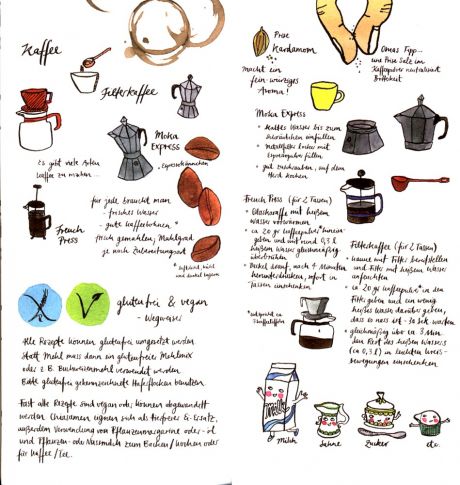 Kaffee
Filterkaffee
Moka
Express
"Espressokännchen"
Es gibt viele Arten
Kaffee zu machen...
French
Press
für jede braucht man
- frisches Wasser
- gute Kaffeebohnen*
frisch gemahlen, Mahlgrad
je nach Zubereitungsart
* luftdicht, kühl
und dunkel lagern
glutenfrei & vegan
- Wegweiser
Alle Rezepte können glutenfrei umgesetzt werden
Statt Mehl muss dann ein glutenfreier Mehlmix
oder z.B. Buchweizenmehl verwendet werden
Bitte glutenfrei gekennzeichnete Haferflocken benutzen
Fast alle Rezepte sind vegan oder können abgewandelt
werden. Chiasamen eignen sich als tierfreier Ei-Ersatz,
außerdem Verwendung von Pflanzenmargarine oder -öl
und Pflanzen- oder Nussmilch zum Backen/Kochen oder
für Kaffee/Tee.
Prise
Kardamom
Macht ein
fein-würziges
Aroma!
Omas Tipp...
eine Prise Salz im
Kaffeepulver neutralisiert
Bitterkeit
Moka Express
kaltes Wasser bis zum
einfüllen
Metallfilter locker mit
Espressopulver füllen
gut zuschrauben, auf dem
Herd kochen
French Press (für 2 Tassen)
Glaskaraffe mit heißem
Wasser vorwärmen
ca 20 gr Kaffeepulver hinein-
geben und mit rund 0,3 l
heißem Wasser gleichmäßig
überbrühen
Deckel drauf, nach 4 Minuten
herunterdrücken, sofort in
Tassen einschenken
Filterkaffee (für 2 Tassen)
Kanne mit Filter bereitstellen
und Filter mit heißem Wasser
anfeuchten
ca 20 gr Kaffeepulver* in den
Filter geben und ein wenig
heißes Wasser darüber geben,
dass es nass ist - 30 Sek. warten
gleichmäßig über ca. 3 Min.
den Rest des heißen Wassers
(ca 0,3 l) in leichten Kreis-
bewegungen einschenken
* entspricht ca
Kaffeelöffeln
Milk
Milch
Sahne
Zucker
etc.